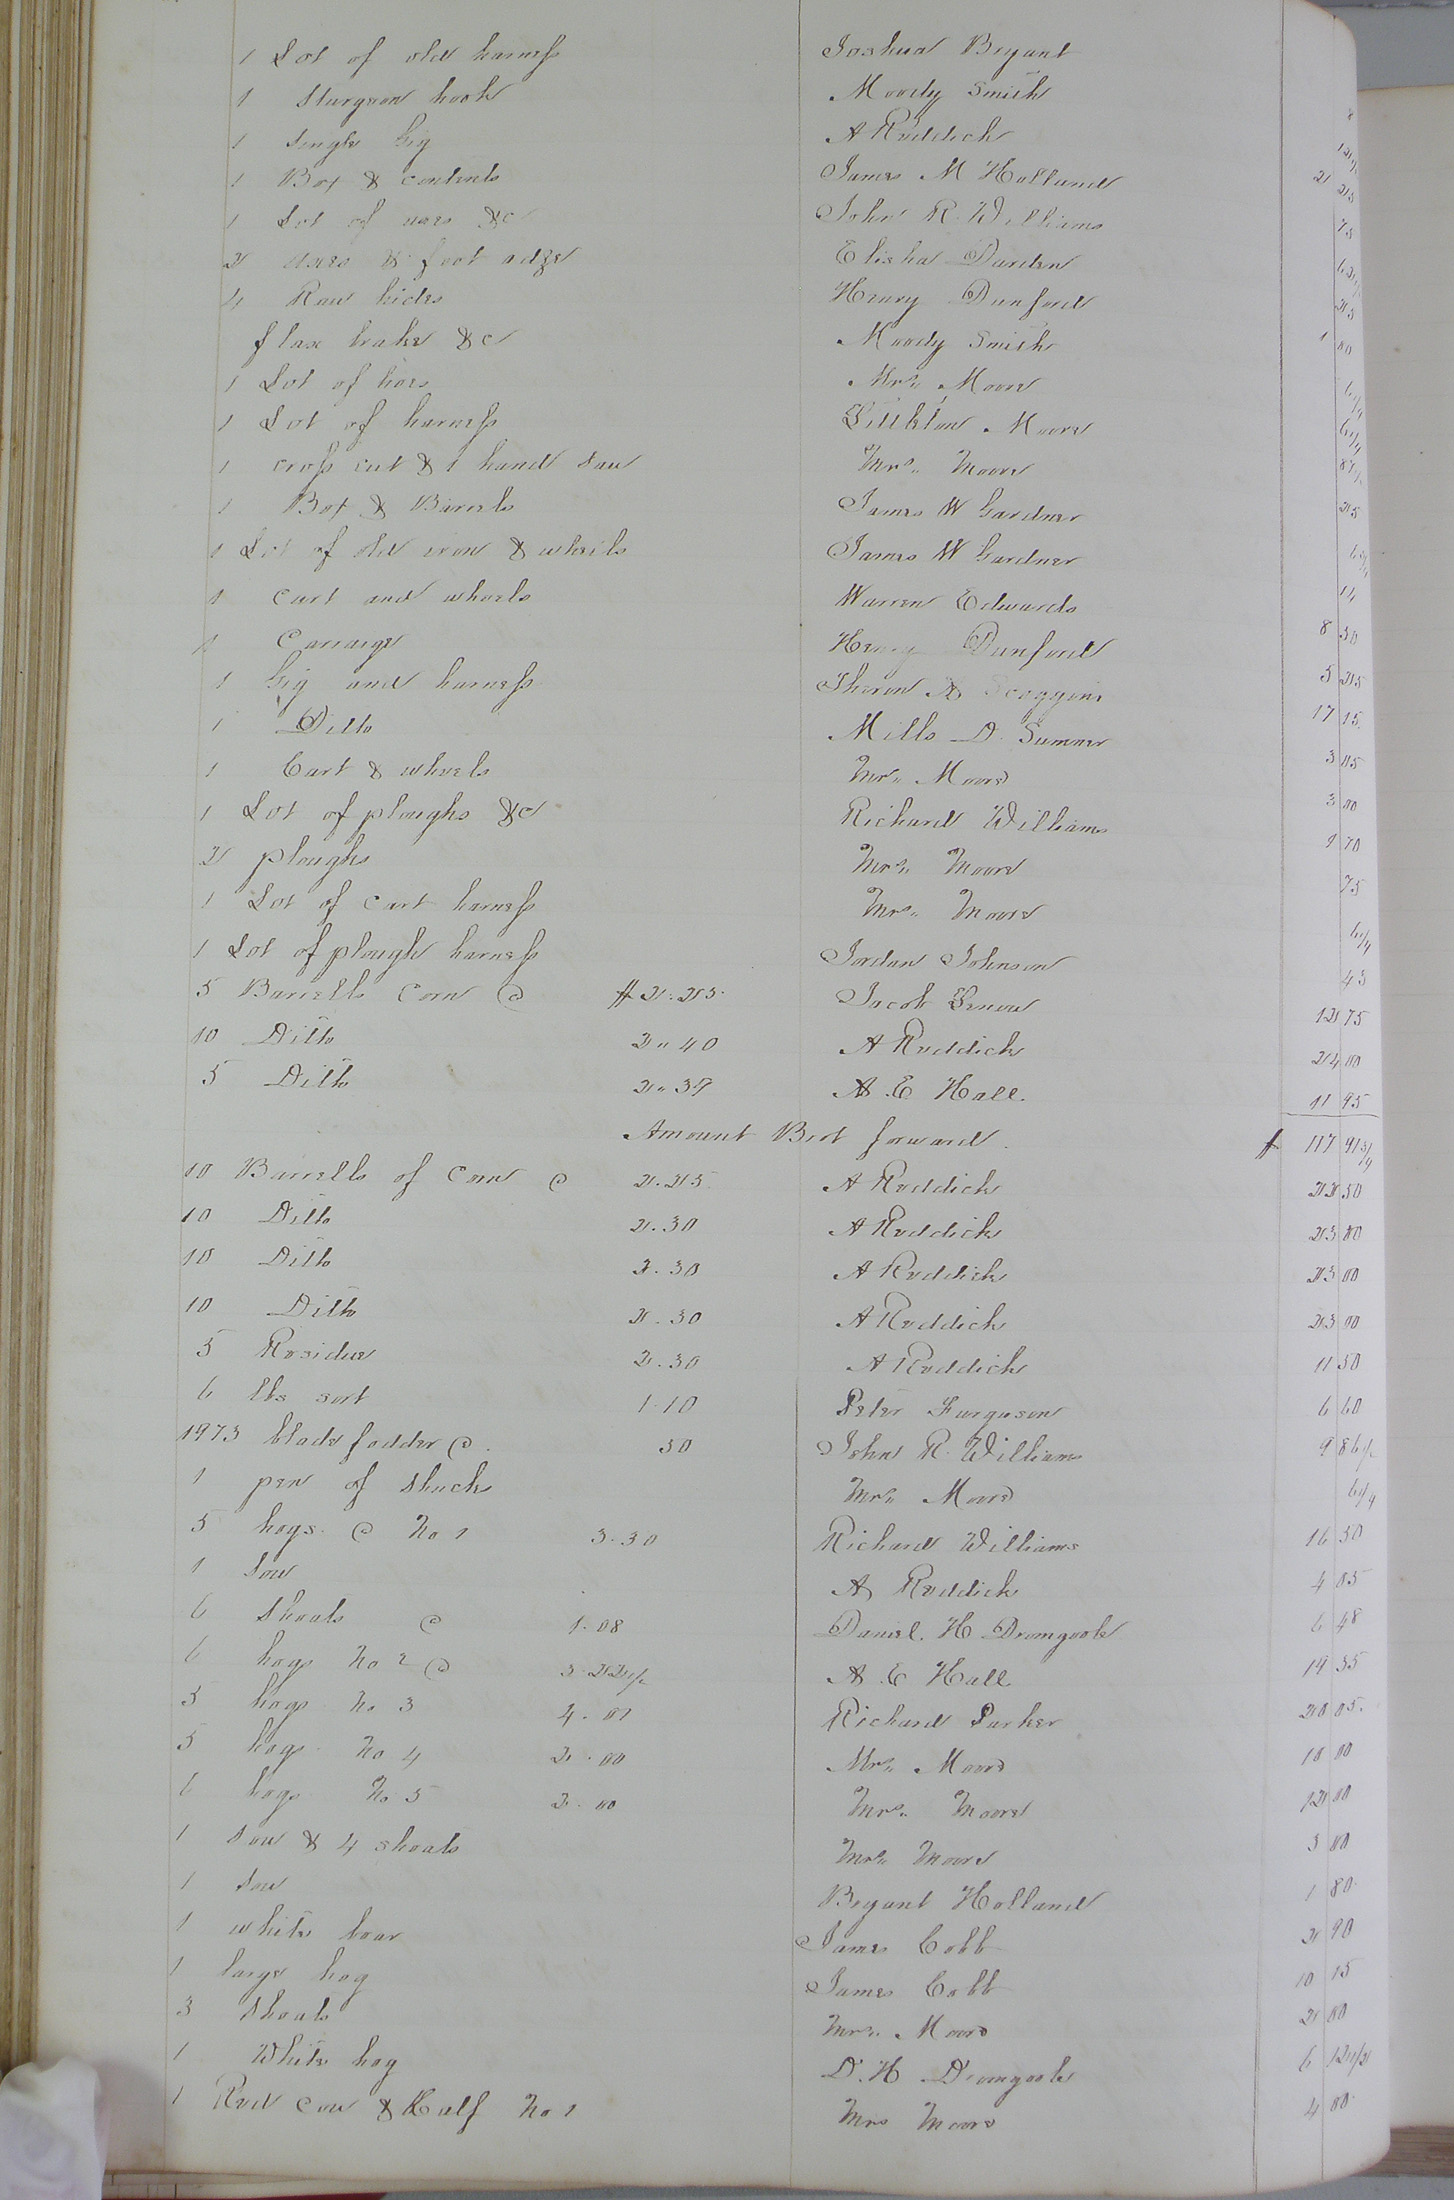 1 Lot of old harness Joshua Bryant
1 Sturgeon hook Moody Smith 8
1 Single Gig A Reddick 12 1/2
1 Box & contents James M Holland 2 25
1 Lot of axes &c John R. Williams 75
2 axes & foot adze Elisha Darden 62 1/2
4 Raw hides Henry Dunford 25
flax brake &c Moody Smith 1 00
1 Lot of hoes Mrs. Moore 6 1/4
1 Lot of harness Littleton Moore 6 1/4
1 cross cut & 1 hand saw Mrs. Moore 87 1/2
1 Box & Barrels James W Gardner 25
1 Lot of old iron & wheels James W Gardner 6 1/4
1 Cart and wheels Warren Edwards 8 50
1 Carraige Henry Dunford 5 25
1 Gig and harness Theron A Scoggins 17 15
1 Ditto Mills D. Sumner 3 05
1 Cart & wheels Mrs. Moore 3 00
1 Lot of ploughs &c Richard Williams 9 70
2 ploughs Mrs. Moore 75
1 Lot of cart harness Mrs. Moore 6 1/4
1 Lot of plough harness Jordan Johnson 43
5 Barrells Corn @ $2.25 Jacob 12 75
10 Ditto 2.40 A Reddick 24 00
5 Ditto 2.39 A E Hall. 11 95
Amount Brot forward. $ 117 91 3/4
10 Barrells of Corn @ 2.25 A Reddick 22 50
10 Ditto 2.30 A Reddick 23 00
10 Ditto 2.30 A Reddick 23 00
10 Ditto 2.30 A Reddick 23 00
5 Residue 2.30 A Reddick 11 50
6 lbs sort 1.10 Peter Furguson 6 60
1973 blade fodder @. 50 John R. Williams 9 86 1/2
1 pen of Shuck Mrs. Moore 6 1/4
5 hogs. @ No 1 3.30 Richard Williams 16 50
1 Sow A Reddick 4 05
6 Shoats @ 1.08 Daniel. H Dromgoole 6 48
6 hogs No 2 @ 3.22 1/2 A E Hall. 19 35
5 hogs No 3 4.01 Richard Parker 20 05.
5 hogs No 4 2.00 Mrs. Moore 10 00
6 hogs No 5 2.00 Mrs. Moore 12 00
1 Sow & 4 shoats Mrs. Moore 3 00
1 Sow Bryant Holland 1 80.
1 white boar James Cobb 2 90
1 large hog James Cobb 10 15
3 Shoats Mrs. Moore 2 00
1 White hog D. H Dromgoole 6 12 1/2
1 Red Cow & Calf No 1 Mrs Moore 4 00